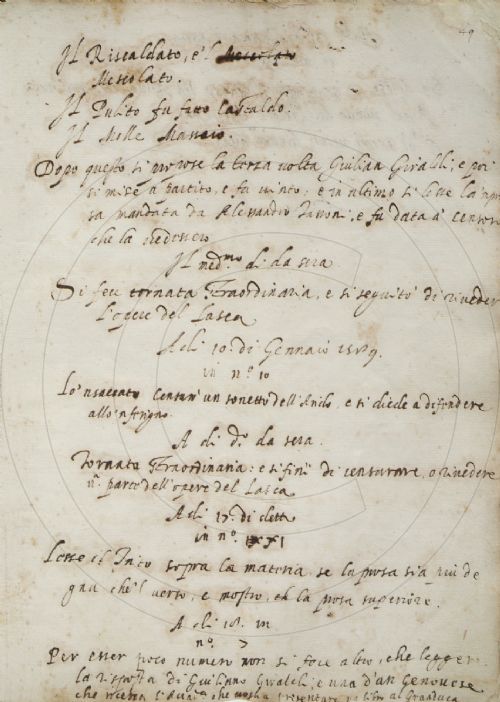 49
Il Riscaldato, e'l Mescolato
Mescolato.
Il Pulito fu fatto Castaldo.
Il Molle Massaio.
Dopo questo si propose la terza volta Giulian Giraldi; e poi
si mise a partito, e fu vinto: e in ultimo si lesse la impre
sa mandata da Alessandro, e fu data a' censori
che la vedessero
Il med.mo dì da sera
Si fece tornata straordinaria, e si seguitò di riveder
l'opere del Lasca
A dì 10. di Gennaio 1589.
in n.o 10
Lo 'nsaccato censurò un sonetto dell', e si diede a difendere
allo 'nferigno.
A dì d.o da sera.
Tornata straordinaria: e si finì di censurare, o rivedere
parte dell'opere del Lasca
A dì 17. di detto
in n.o
Lesse il sopra la materia, se la prosa sia più de
gna che'l verso, e mostrò, la prosa superiore.
A dì 18. in
n.o 7
Per esser poco numero non si fece altro, che leggere
la risposta di Giuliano e una d'un Genovese
che